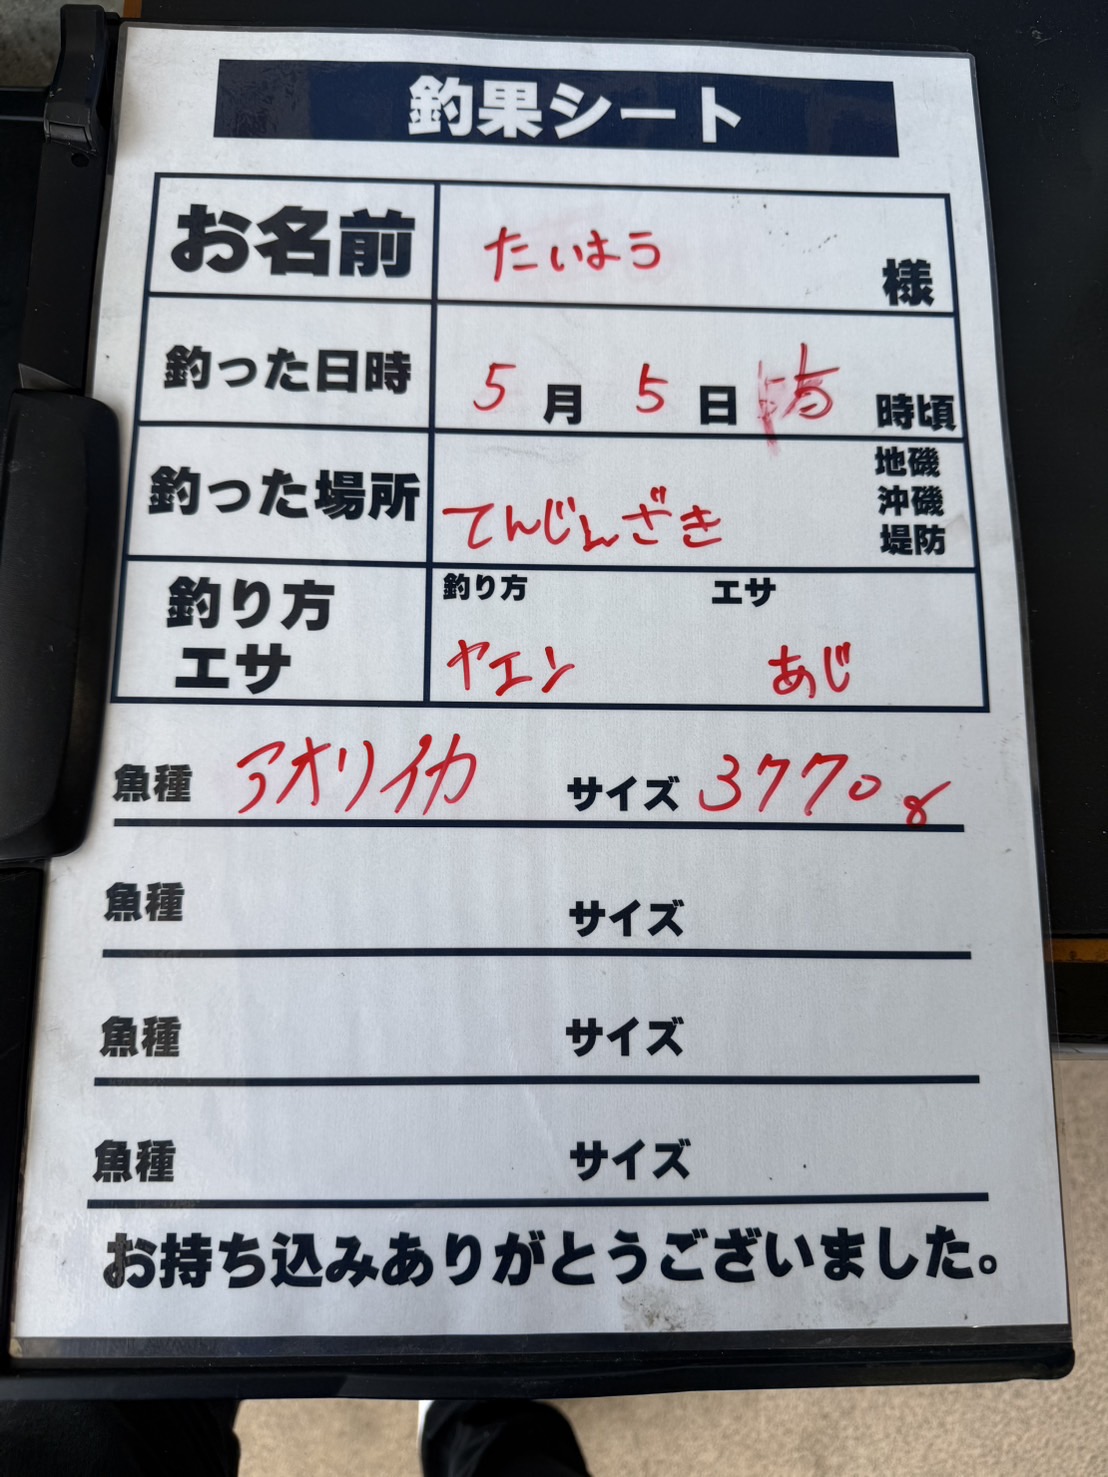 釣果シート
お名前 たいよう 様
釣った日時 5月5日 時頃
釣った場所 てんじんざき 地磯 沖磯 堤防
釣り方 エサ 釣り方 ヤエン エサ あじ
魚種 アオリイカ サイズ 3770g
魚種 サイズ
魚種 サイズ
魚種 サイズ
お持ち込みありがとうございました。